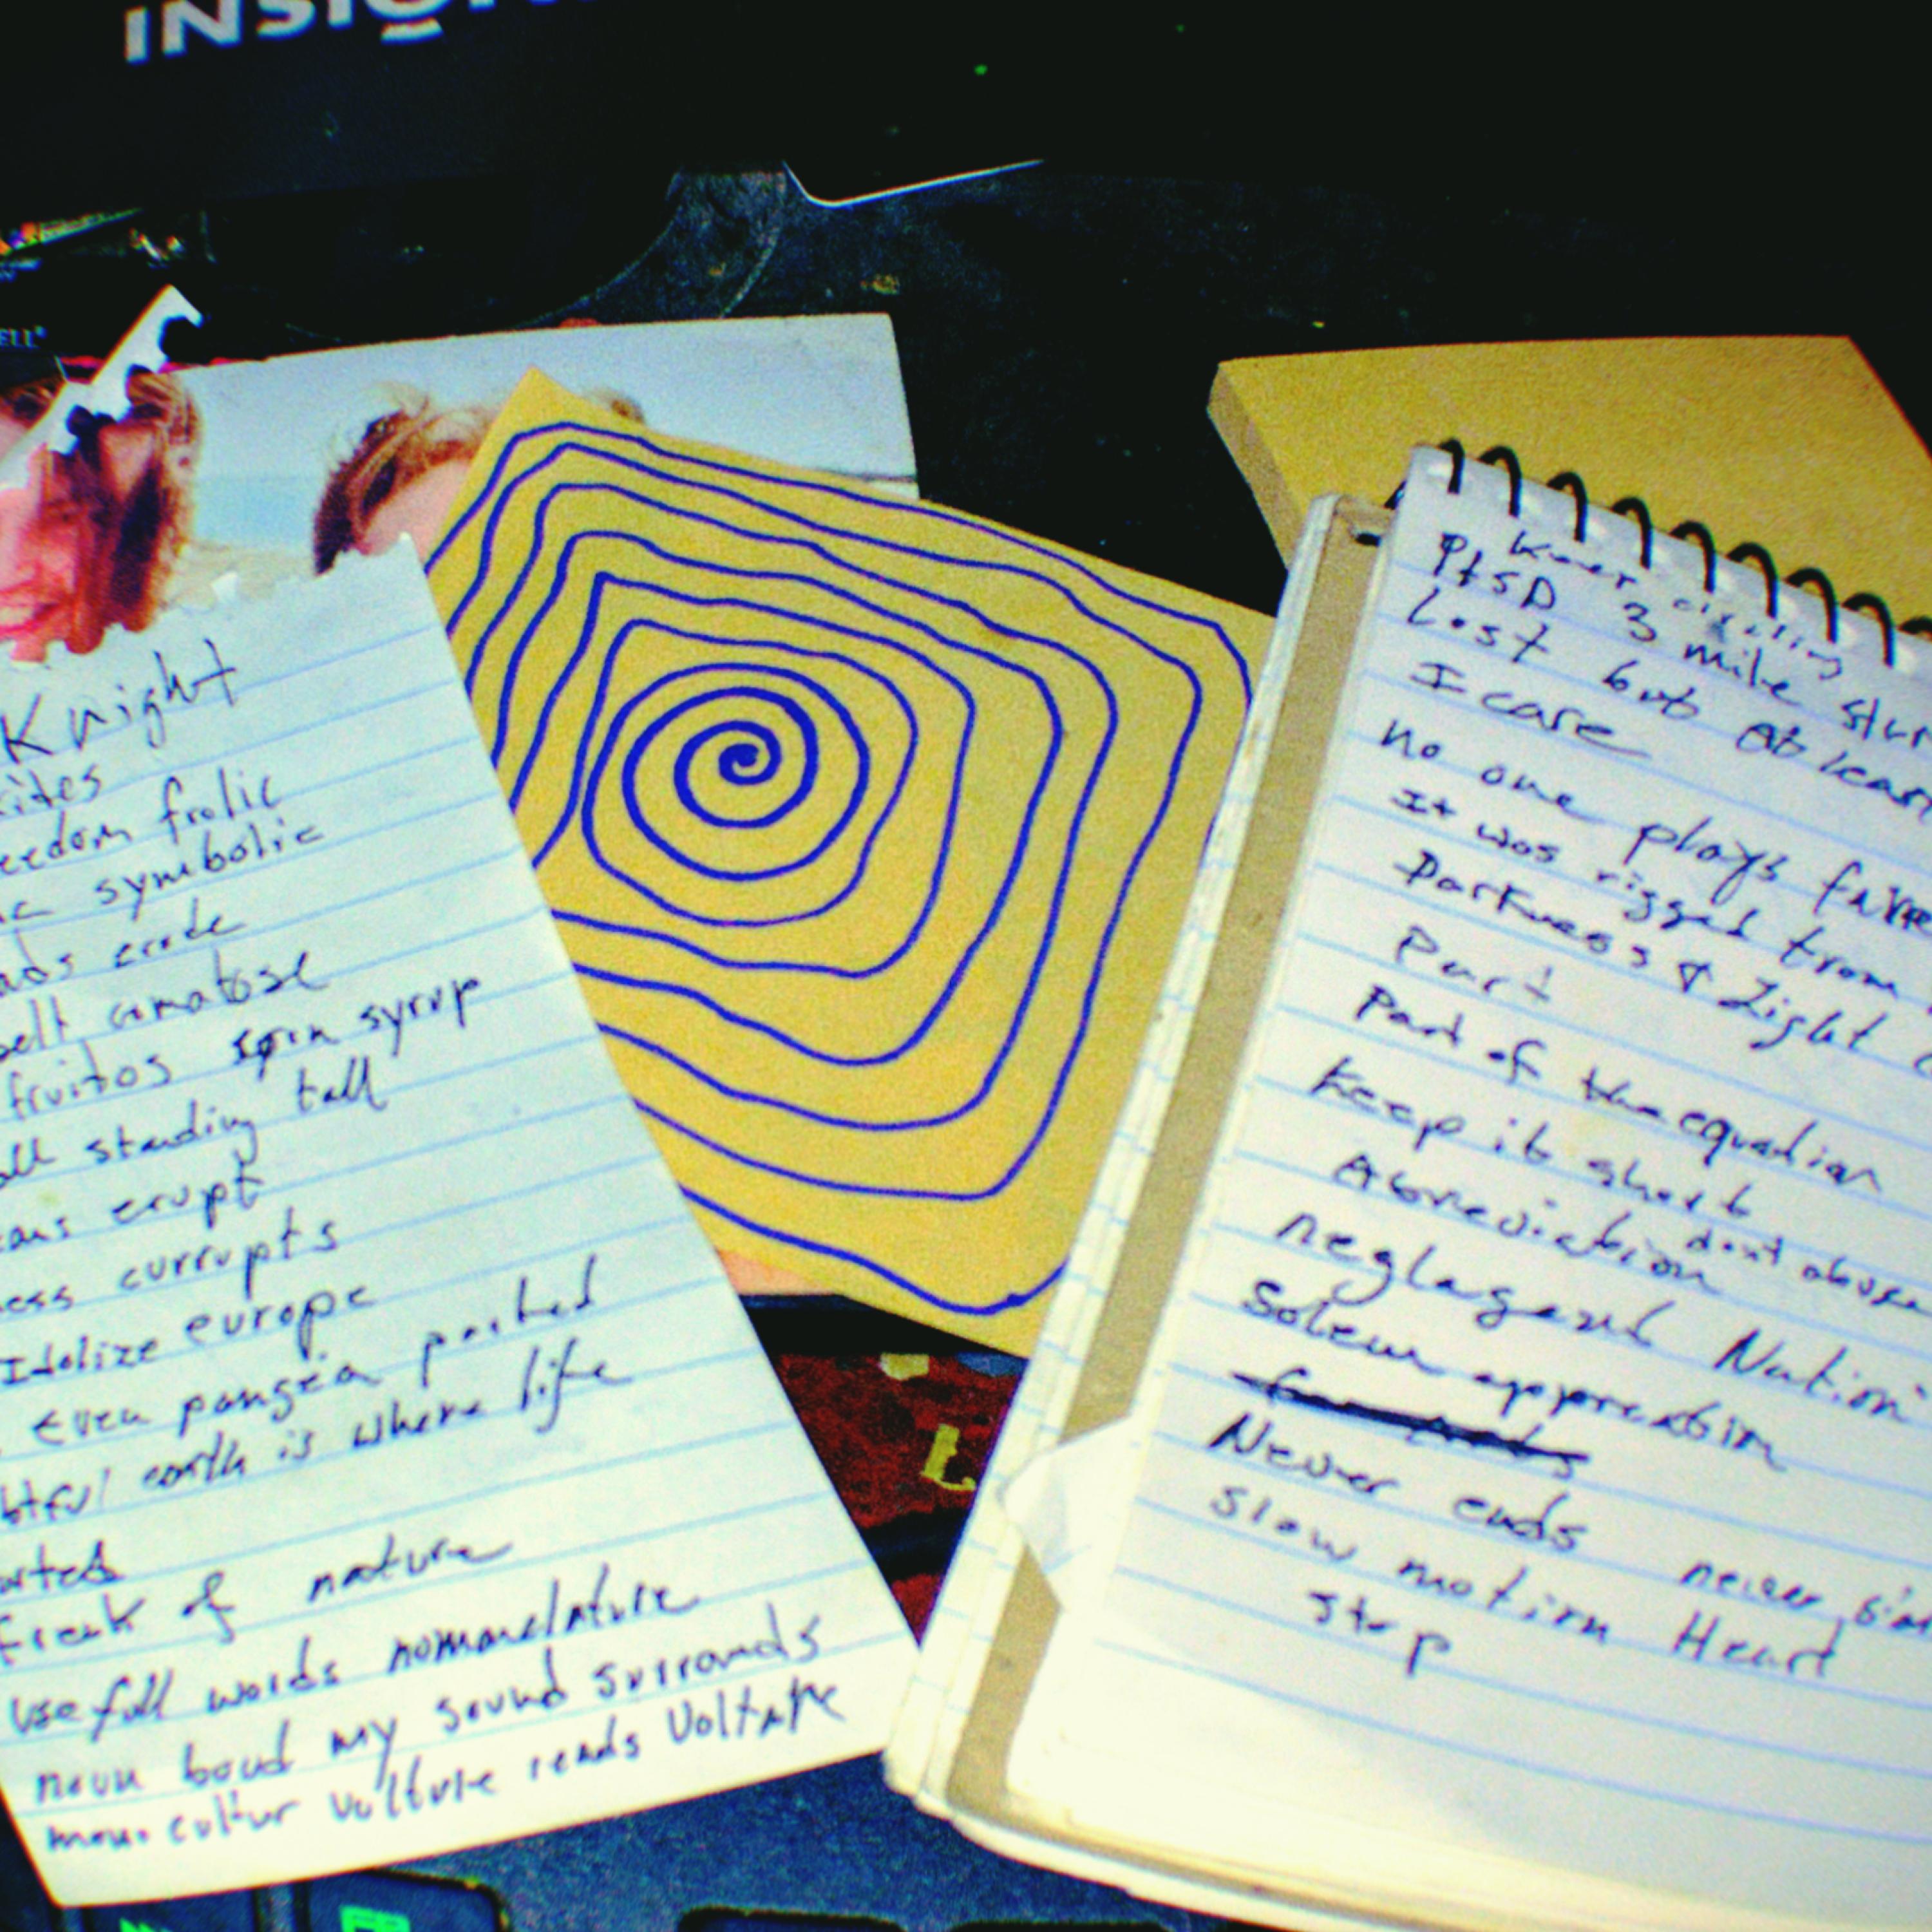 INSIGN
ELL
Knight
kites
eedom frolic
symbolic
ads erode
belt comatose
fruitos corn syrup
all standing tall
erupt
ess currupts
Idolize europe
even pangea parted
btful earth is where life
arted
freak of nature
usefull words nomanclature
noun boud my sound surrounds
mono cultur vulture reads Voltare
PtSD 3 mile slur
Lost but at least
I care
no one plays
It was rigged from
Darkness & Light
Part
Part of the equation
Keep it short
dont abuse
Abreviation
neglagent Nation
Solem appreation
Never ends never
slow motion Heart
stop